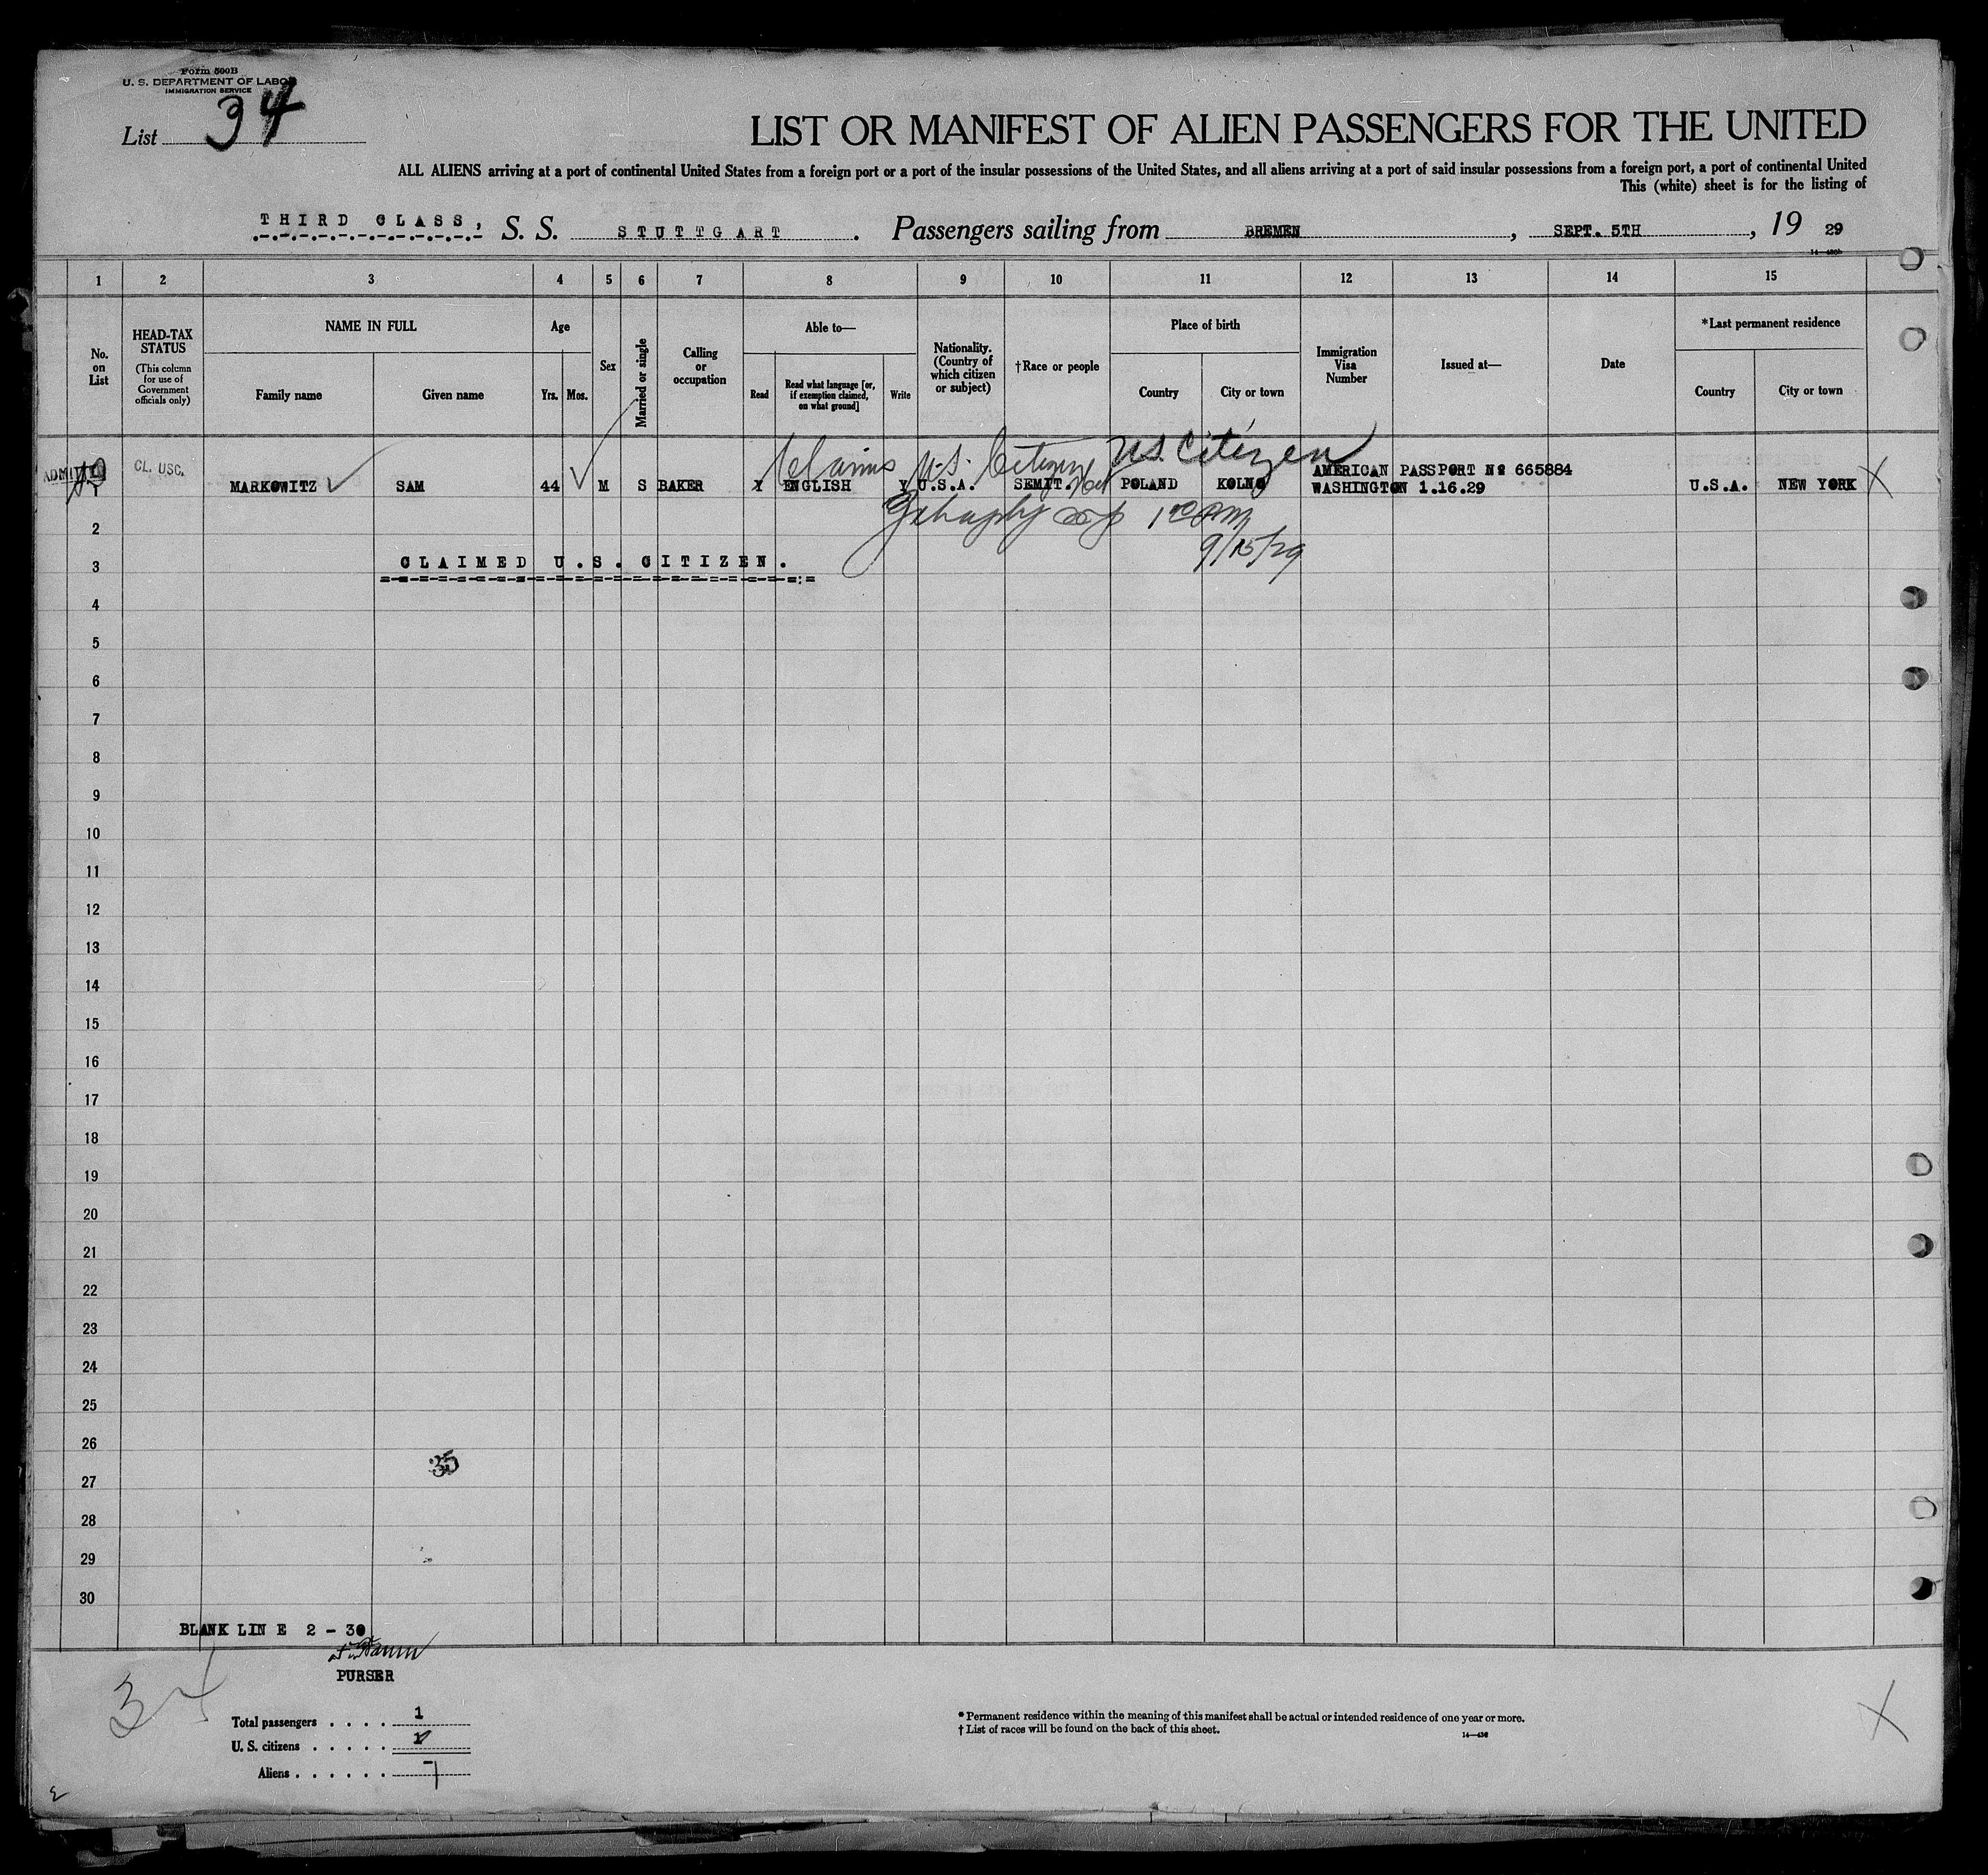 Form 500B
U. S. DEPARTMENT OF LABOR
IMMIGRATION SERVICE
List 34
LIST OR MANIFEST OF ALIEN PASSENGERS FOR THE UNITED
ALL ALIENS arriving at a port of continental United States from a foreign port or a port of the insular possessions of the United States, and all aliens arriving at a port of said insular possessions from a foreign port, a port of continental United
This (white) sheet is for the listing of
THIRD CLASS, S. S. STUTTGART. Passengers sailing from BREMEN, SEPT. 5TH, 19 29
1 2 3 4 5 6 7 8 9 10 11 12 13 14 15
No. on List
HEAD-TAX STATUS
(This column for use of Government officials only)
NAME IN FULL
Family name
Given name
Age
Yrs.
Mos.
Sex
Married or single
Calling or occupation
Able to—
Read
Read what language [or, if exemption claimed, on what ground]
Write
Nationality. (Country of which citizen or subject)
†Race or people
Place of birth
Country
City or town
Immigration Visa Number
Issued at—
Date
*Last permanent residence
Country
City or town
Claims U.S. Citizen U.S. Citizen
ADMITTED CL. USC. AMERICAN PASSPORT No 665884
1 MARKOWITZ SAM 44 M S BAKER Y ENGLISH Y U.S.A. SEMIT. POLAND KOLNO WASHINGTON 1.16.29 U.S.A. NEW YORK X
2
9/15/29
3 CLAIMED U.S. CITIZEN.
4
5
6
7
8
9
10
11
12
13
14
15
16
17
18
19
20
21
22
23
24
25
26
35
27
28
29
30
BLANK LINE 2 - 30
PURSER
34
Total passengers . . . . 1
U. S. citizens . . . . . 1
Aliens . . . . . . -
* Permanent residence within the meaning of this manifest shall be actual or intended residence of one year or more.
† List of races will be found on the back of this sheet.
X